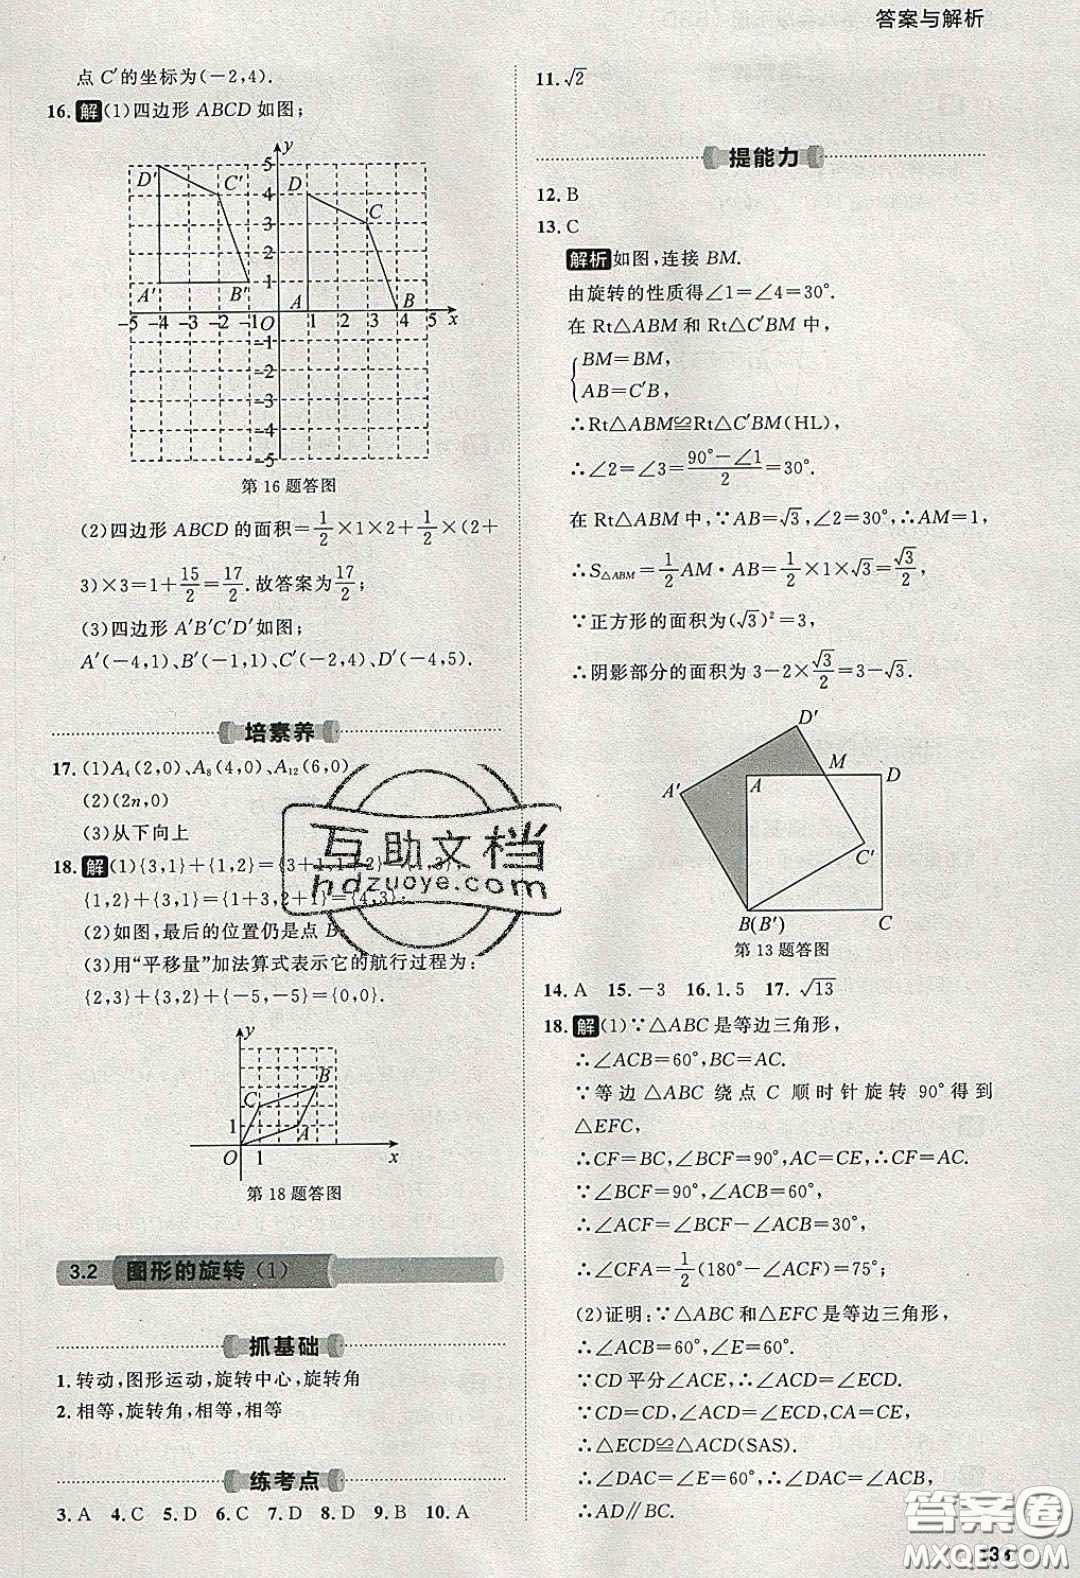 答案与解析
点 C′的坐标为(－2,4).
16. 解 (1)四边形 ABCD 如图；
y
D′ 5
C′ D 4
C 3
2
A′ B′ 1
A B
－5 －4 －3 －2 －1 O 1 2 3 4 5 x
－1
－2
－3
－4
－5
第 16 题答图
(2)四边形 ABCD 的面积＝1/2×1×2＋1/2×(2＋
3)×3＝1＋15/2＝17/2. 故答案为17/2；
(3)四边形 A′B′C′D′如图；
A′(－4,1)、B′(－1,1)、C′(－2,4)、D′(－4,5).
培素养
17. (1)A₄(2,0)、A₈(4,0)、A₁₂(6,0)
(2)(2n,0)
(3)从下向上
18. 解 (1){3,1}＋{1,2}＝{3＋1,1＋2}＝{4,3},
{1,2}＋{3,1}＝{1＋3,2＋1}＝{4,3};
(2)如图,最后的位置仍是点 B
(3)用“平移量”加法算式表示它的航行过程为：
{2,3}＋{3,2}＋{－5,－5}＝{0,0}.
y
B
C
1 A
O 1 x
第 18 题答图
3.2 图形的旋转(1)
抓基础
1. 转动,图形运动,旋转中心,旋转角
2. 相等,旋转角,相等,相等
练考点
3. A 4. C 5. C 6. C 7. D 8. D 9. B 10. A
11. √2
提能力
12. B
13. C
解析 如图,连接 BM.
由旋转的性质得∠1＝∠4＝30°.
在 Rt△ABM 和 Rt△C′BM 中,
{BM＝BM,
AB＝C′B,
∴Rt△ABM≌Rt△C′BM(HL),
∴∠2＝∠3＝(90°－∠1)/2＝30°.
在 Rt△ABM 中,∵AB＝√3,∠2＝30°,∴AM＝1,
∴S△ABM＝1/2AM·AB＝1/2×1×√3＝√3/2,
∵正方形的面积为(√3)²＝3,
∴阴影部分的面积为 3－2×√3/2＝3－√3.
D′
A M D
A′
C′
B(B′) C
第 13 题答图
14. A 15. －3 16. 1.5 17. √13
18. 解 (1)∵△ABC 是等边三角形,
∴∠ACB＝60°,BC＝AC.
∵等边 △ABC 绕点 C 顺时针旋转 90°得到
△EFC,
∴CF＝BC,∠BCF＝90°,AC＝CE,∴CF＝AC.
∵∠BCF＝90°,∠ACB＝60°,
∴∠ACF＝∠BCF－∠ACB＝30°,
∴∠CFA＝1/2(180°－∠ACF)＝75°;
(2)证明:∵△ABC 和△EFC 是等边三角形,
∴∠ACB＝60°,∠E＝60°.
∵CD 平分∠ACE,∴∠ACD＝∠ECD.
∵CD＝CD,∠ACD＝∠ECD,CA＝CE,
∴△ECD≌△ACD(SAS).
∴∠DAC＝∠E＝60°,∴∠DAC＝∠ACB,
∴AD∥BC.
互助文档
hdzuoye.com
答案圈
MXQE.COM